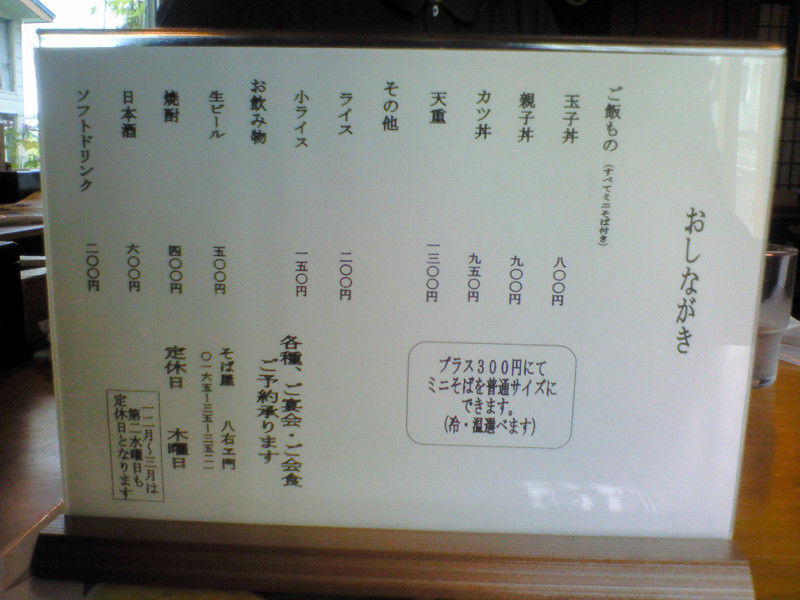 おしながき
ご飯もの（すべてミニそば付き）
玉子丼 八〇〇円
親子丼 九〇〇円
カツ丼 九五〇円
天重 一三〇〇円
その他
ライス 二〇〇円
小ライス 一五〇円
お飲み物
生ビール 五〇〇円
焼酎 四〇〇円
日本酒 六〇〇円
ソフトドリンク 二〇〇円
プラス３００円にて
ミニそばを普通サイズに
できます。
（冷・温選べます）
各種、ご宴会・ご会食
ご予約承ります
そば屋 八右ヱ門
〇一六五−三五−三五二一
定休日 木曜日
一二月〜三月は
第二水曜日も
定休日となります